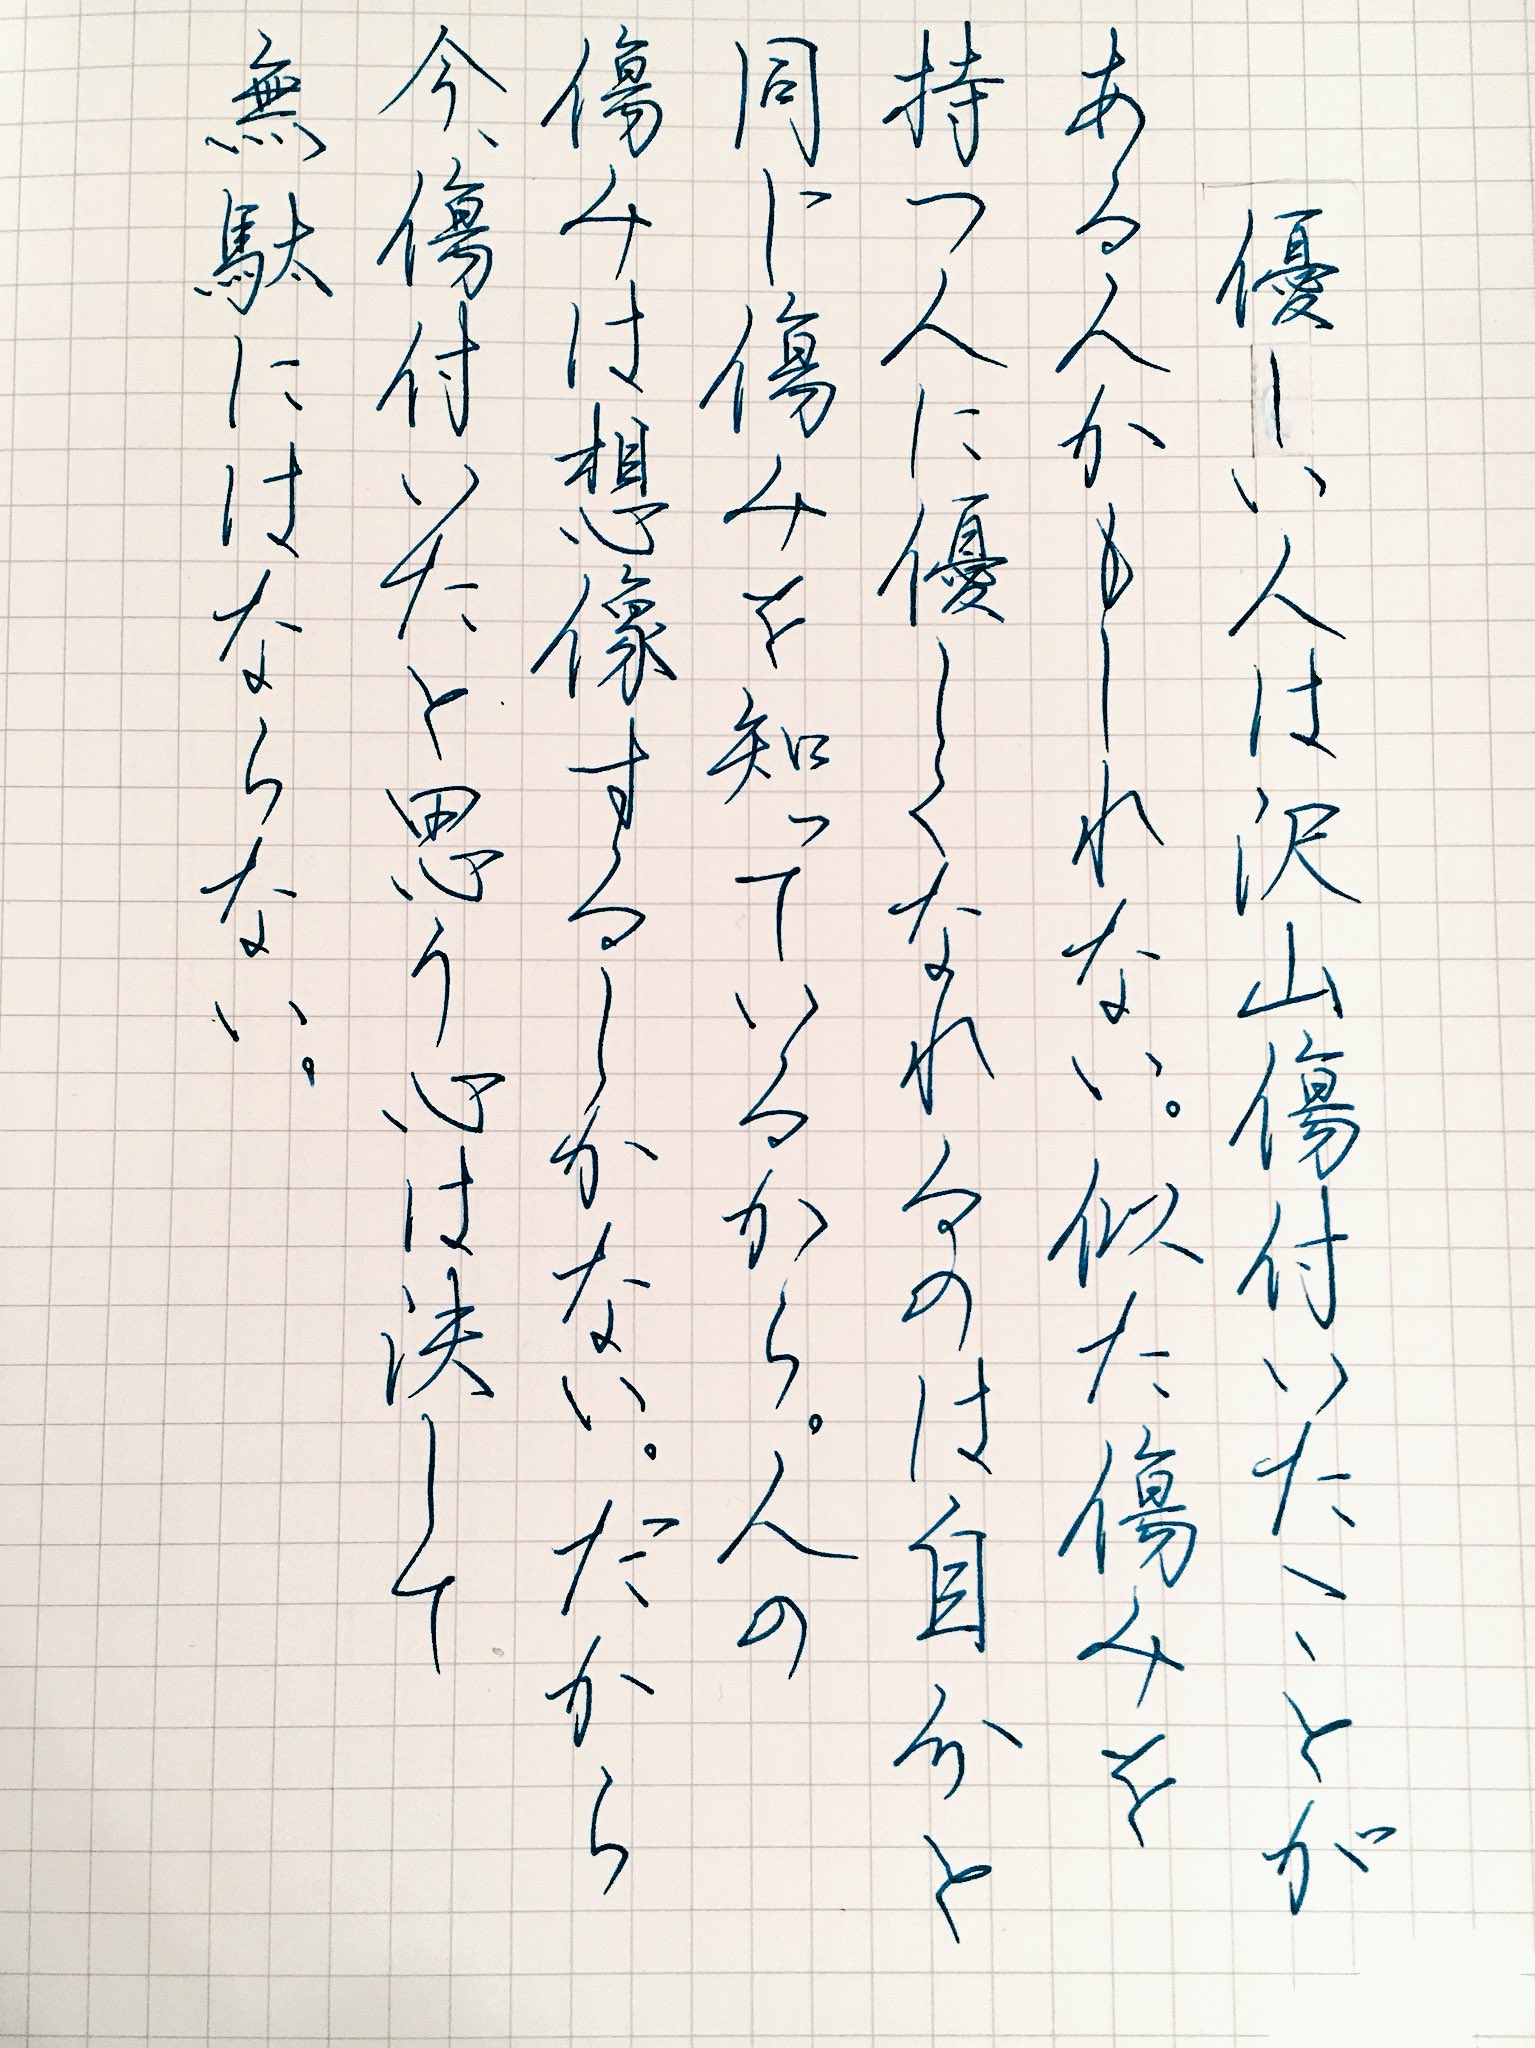 優しい人は沢山傷付いたことが
ある人かもしれない。似た傷みを
持つ人に優しくなれるのは自分と
同じ傷みを知っているから。人の
傷みは想像するしかない。だから
今、傷付いたと思う心は決して
無駄にはならない。